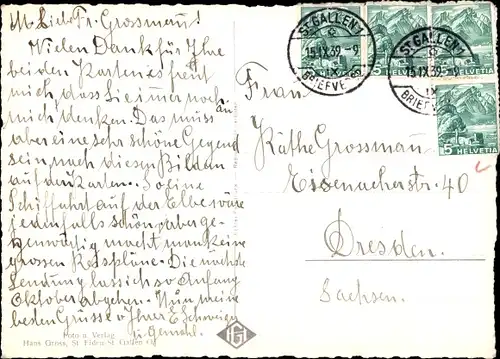 M. Lieb. Fr. Grossmann!
Vielen Dank für Ihre
beiden Karten es freut
mich, dass Sie immer noch an
mich denken. Das muss
aber eine sehr schöne Gegend
sein nach diesen Bildern
auf der Karten. So eine
Schiffahrt auf der Elbe wäre
jedenfalls schön, aber ge-
genwärtig macht man keine
grossen Reisepläne. Die nächste
Sendung lass ich so Anfang
Oktober abgehen. Nun meine
besten Grüsse v. Ihrer E. Schweizer
u. Gemahl.
Foto u. Verlag
Hans Gross, St. Fiden-St. Gallen
HG
ST. GALLEN 1
15.IX.39.-9
BRIEFVERS.
ST. GALLEN 1
15.IX.39.-9
BRIEFVERS.
5 HELVETIA
HELVETIA
5 HELVETIA
Frau
Käthe Grossmann
Eisenacherstr. 40
Dresden.
Sachsen.